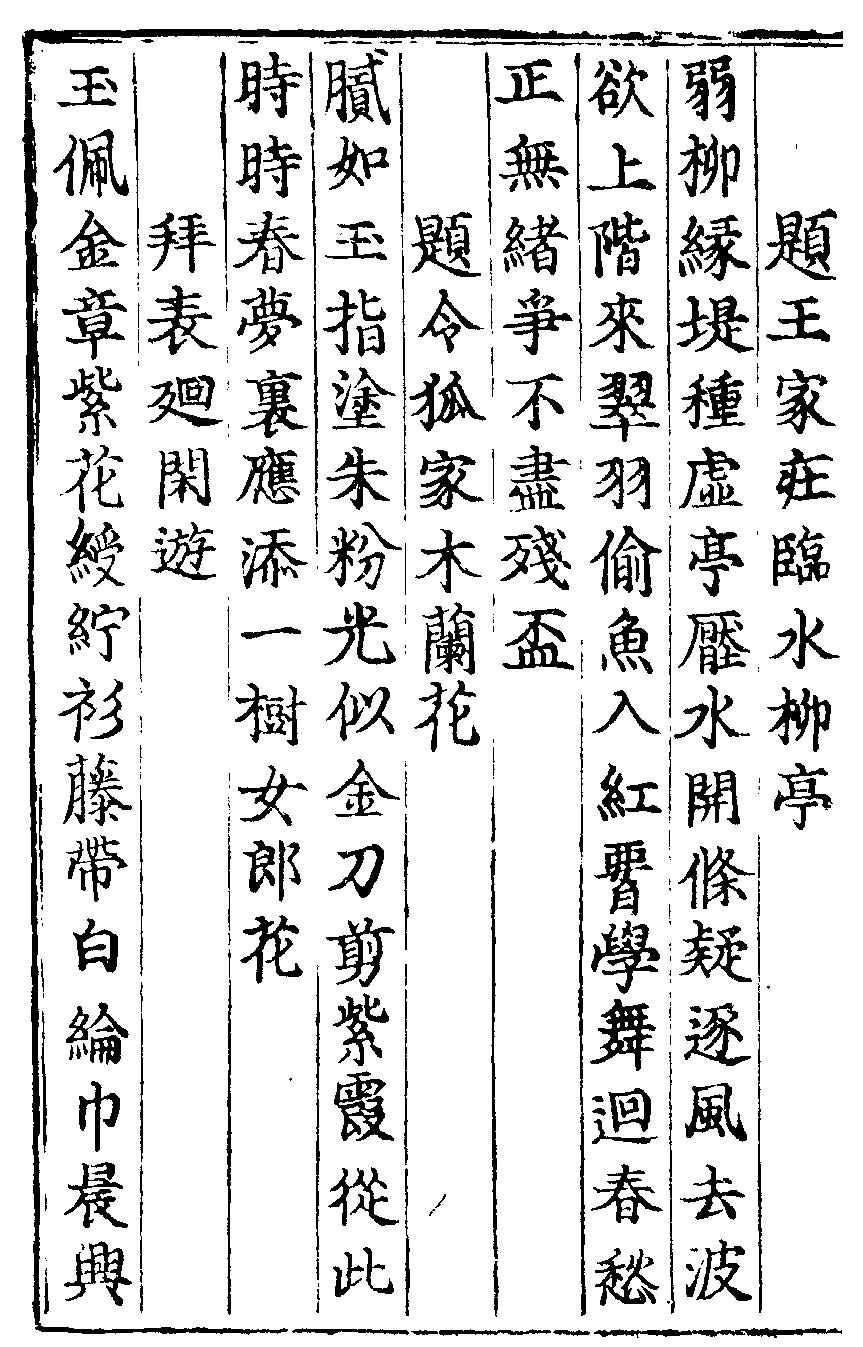 題王家莊臨水柳亭
弱柳縁堤種虛亭壓水開條疑逐風去波
欲上階來翠羽偷魚入紅腰學舞迴春愁
正無緒爭不盡殘盃
題令狐家木蘭花
膩如玉指塗朱粉光似金刀剪紫霞從此
時時春夢裏應添一樹女郎花
拜表廻閑遊
玉佩金章紫花綬紵衫藤帶白綸巾晨興